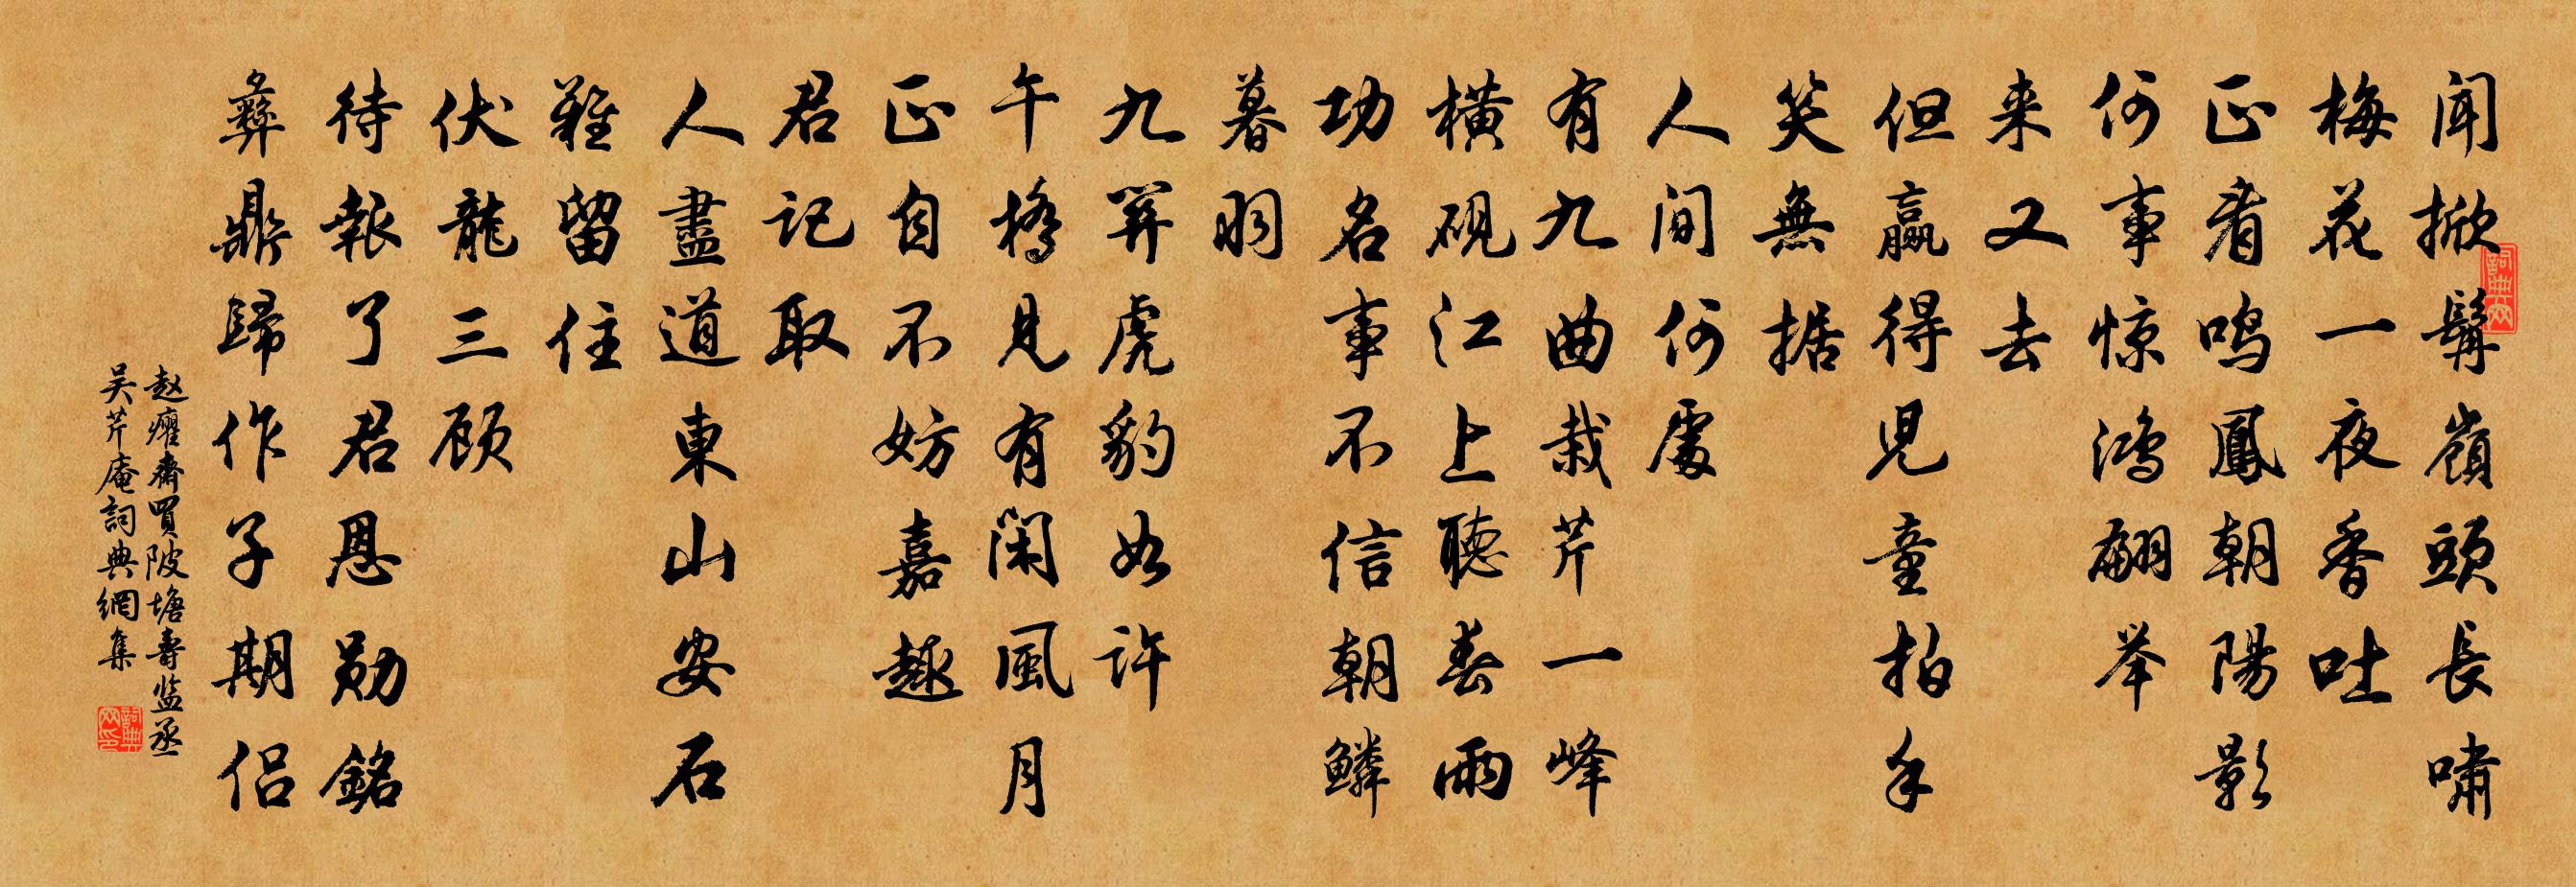 闻掀髯嶺頭長嘯
梅花一夜香吐
正看鸣鳳朝陽影
何事惊鸿翩举
来又去
但赢得児童拍手
笑無据
人间何處
有九曲栽芹一峰
横砚江上聽春雨
功名事不信朝鳞
暮羽
九关虎豹如许
午橋見有闲風月
正自不妨嘉趣
君记取
人盡道東山安石
難留住
伏龍三顾
待報了君恩勋銘
彝鼎歸作子期侣
赵癯斋買陂塘壽监丞
吴芹庵詞典網集
詞典网
詞典网印